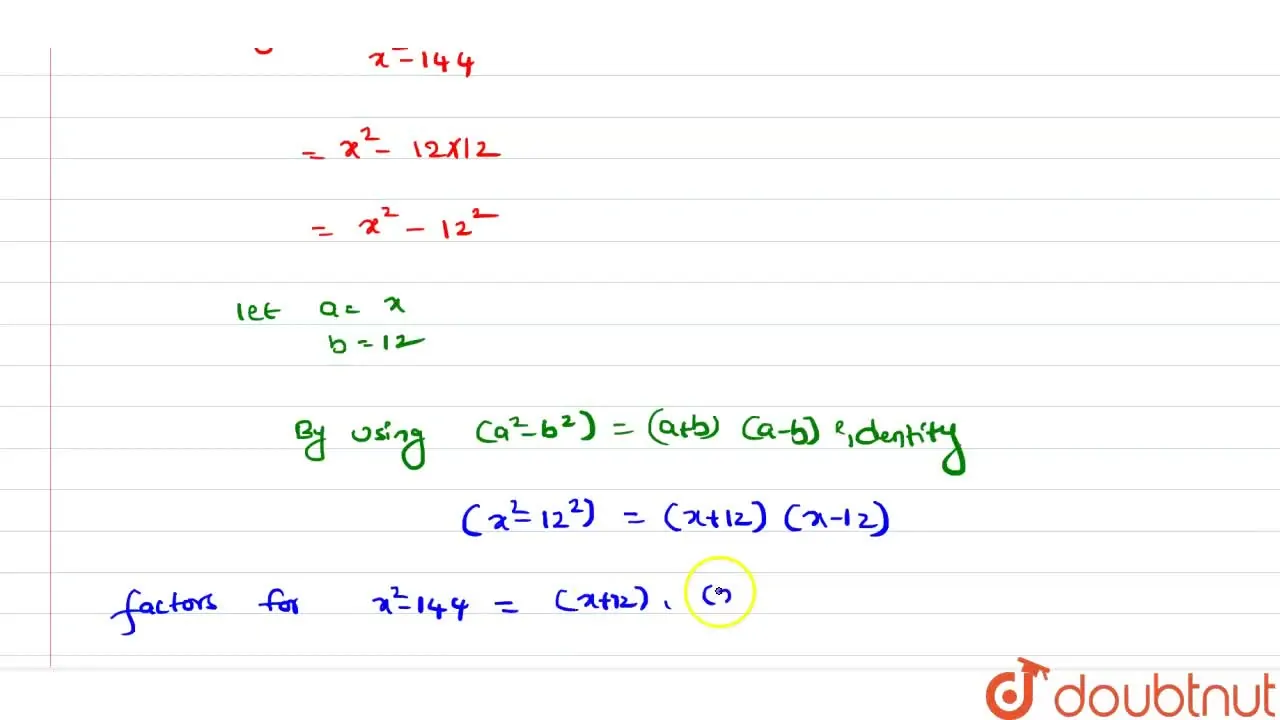 x²-144
= x² - 12×12
= x² - 12²
let a = x
b = 12
By using (a²-b²) = (a+b) (a-b) identity
(x²-12²) = (x+12) (x-12)
factors for x²-144 = (x+12), (
doubtnut